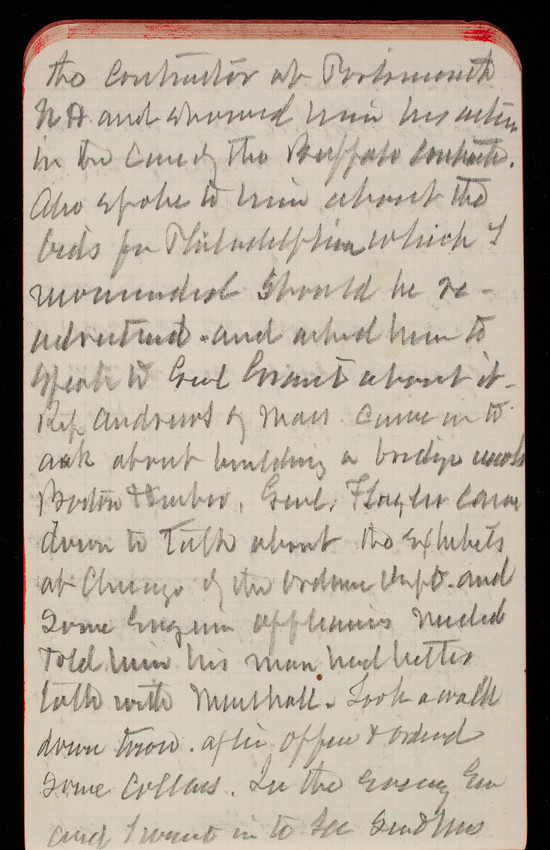 the contractor at Portsmouth
N H and showed him his action
in the case of the Buffalo contracts.
Also spoke to him about the
bids for Philadelphia which I
recommended should be re-
advertised. and asked him to
speak to Genl Grant about it.
Rep Andrews of Mass came in to
ask about building a bridge
Boston Harbor, Genl. Flagler came
down to talk about the exhibits
at Chicago of the Ordnance Dept. and
some Engineer appliances needed
Told him his man had better
talk with Marshall. Took a walk
down town. after office & ordered
some collars. In the evening Em
and I went in to see Genl Mrs